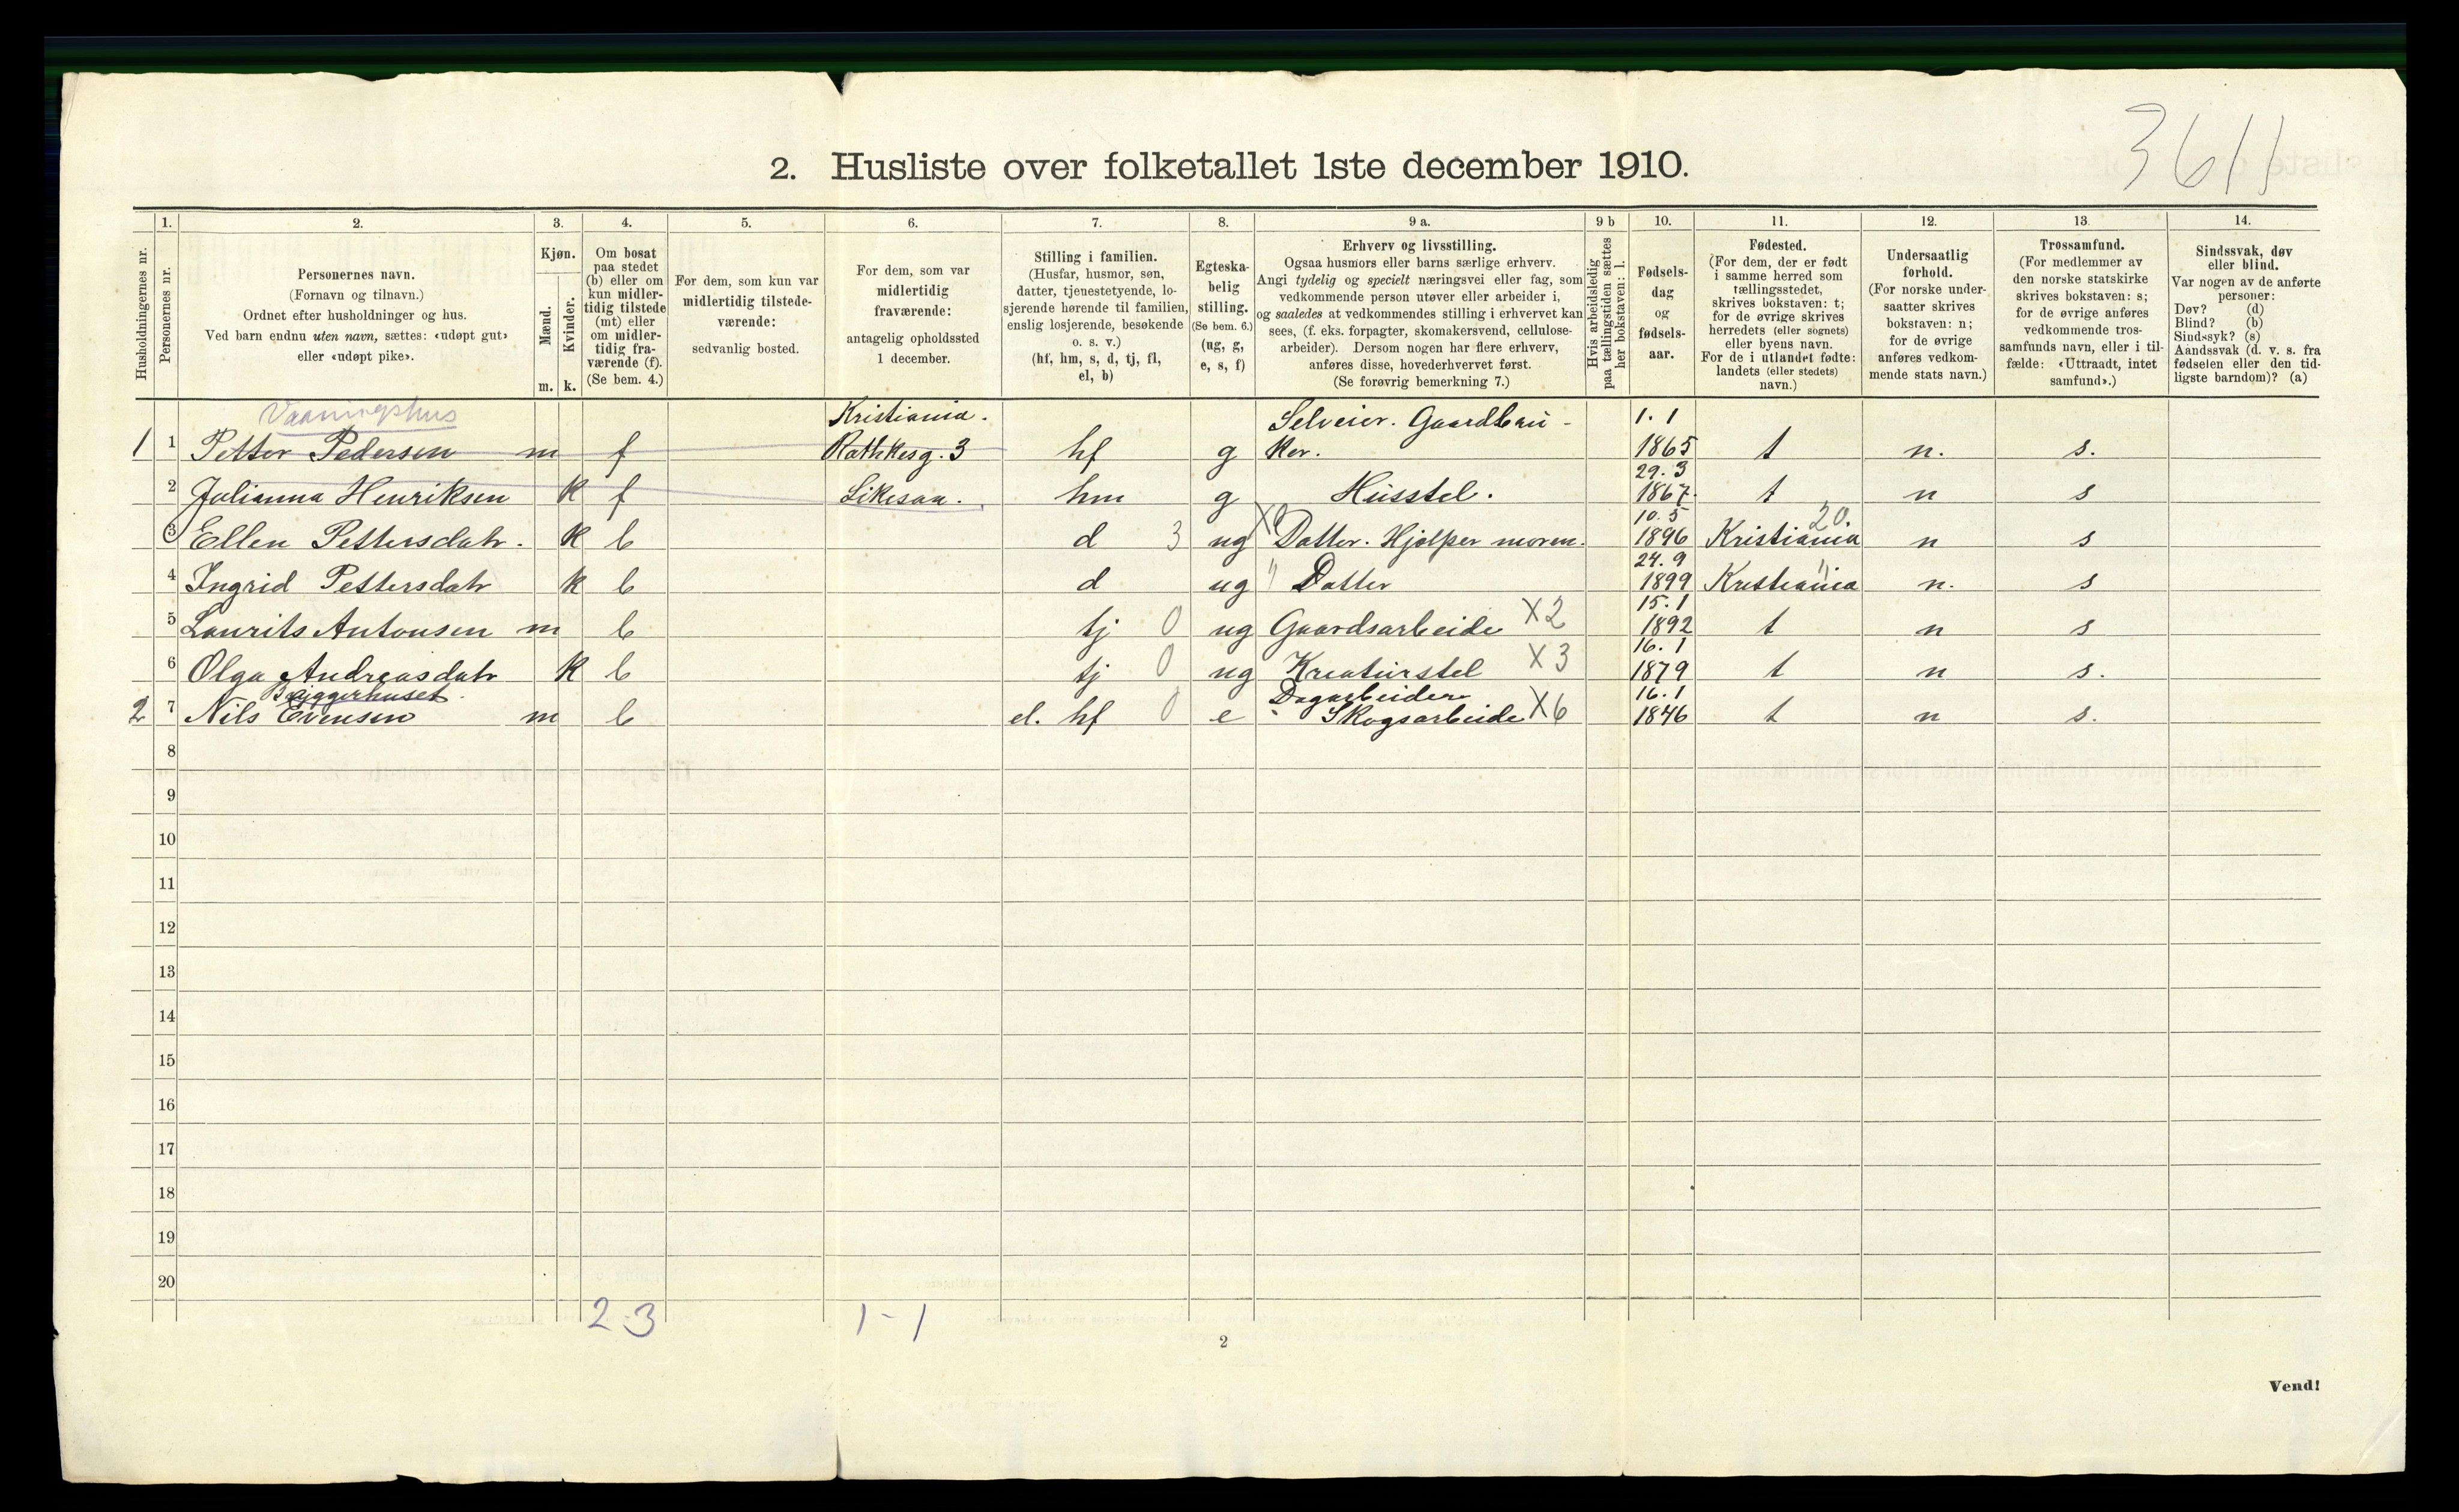 3611
2. Husliste over folketallet 1ste december 1910.
Husholdningernes nr.
1.
Personernes nr.
2.
Personernes navn.
(Fornavn og tilnavn.)
Ordnet efter husholdninger og hus.
Ved barn endnu uten navn, sættes: «udøpt gut»
eller «udøpt pike».
3.
Kjøn.
Mænd.
Kvinder.
m. k.
4.
Om bosat
paa stedet
(b) eller om
kun midler-
tidig tilstede
(mt) eller
om midler-
tidig fra-
værende (f).
(Se bem. 4.)
5.
For dem, som kun var
midlertidig tilstede-
værende:
sedvanlig bosted.
6.
For dem, som var
midlertidig
fraværende:
antagelig opholdssted
1 december.
7.
Stilling i familien.
(Husfar, husmor, søn,
datter, tjenestetyende, lo-
sjerende hørende til familien,
enslig losjerende, besøkende
o. s. v.)
(hf, hm, s, d, tj, fl,
el, b)
8.
Egteska-
belig
stilling.
(Se bem. 6.)
(ug, g,
e, s, f)
9 a.
Erhverv og livsstilling.
Ogsaa husmors eller barns særlige erhverv.
Angi tydelig og specielt næringsvei eller fag, som
vedkommende person utøver eller arbeider i,
og saaledes at vedkommendes stilling i erhvervet kan
sees, (f. eks. forpagter, skomakersvend, cellulose-
arbeider). Dersom nogen har flere erhverv,
anføres disse, hovederhvervet først.
(Se forøvrig bemerkning 7.)
9 b
Hvis arbeidsledig
paa tællingstiden sættes
her bokstaven: l.
10.
Fødsels-
dag
og
fødsels-
aar.
11.
Fødested.
(For dem, der er født
i samme herred som
tællingsstedet,
skrives bokstaven: t;
for de øvrige skrives
herredets (eller sognets)
eller byens navn.
For de i utlandet fødte:
landets (eller stedets)
navn.)
12.
Undersaatlig
forhold.
(For norske under-
saatter skrives
bokstaven: n;
for de øvrige
anføres vedkom-
mende stats navn.)
13.
Trossamfund.
(For medlemmer av
den norske statskirke
skrives bokstaven: s;
for de øvrige anføres
vedkommende tros-
samfunds navn, eller i til-
fælde: «Uttraadt, intet
samfund».)
14.
Sindssvak, døv
eller blind.
Var nogen av de anførte
personer:
Døv? (d)
Blind? (b)
Sindssyk? (s)
Aandssvak (d. v. s. fra
fødselen eller den tid-
ligste barndom)? (a)
Vaaningshus Kristiania. Selveier. Gaardbru- 1.1
1 1 Petter Pedersen m f Rathkesg. 3 hf g ker. 1865 t n. s.
29.3
2 Julianna Henriksen k f Likesaa. hm g Husstel. 1867 t n s
10.5 20.
3 Ellen Pettersdatr. k b d 3 ug Datter. Hjælper moren. 1896 Kristiania n s
24.9
4 Ingrid Pettersdatr k b d ug " Datter 1899 Kristiania n. s
15.1
5 Laurits Antonsen m b tj 0 ug Gaardsarbeide X2 1892 t n s
16.1
6 Olga Andreasdatr k b tj 0 ug Kreaturstel X3 1879 t n s.
Bryggerhuset Dagarbeider 16.1
2 7 Nils Evensen m b el. hf 0 e Skogsarbeide X6 1846 t n s.
8
9
10
11
12
13
14
15
16
17
18
19
20
2-3 1-1
2
Vend!